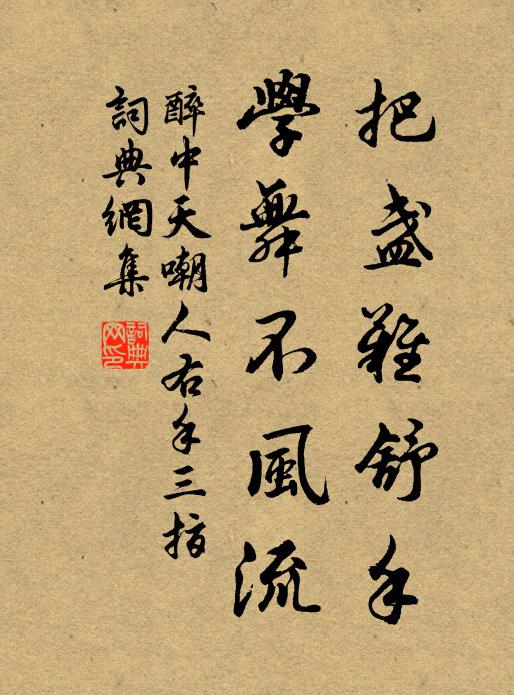 把盞難舒手
學舞不風流
醉中天嘲人右手三指
詞典網集
詞典网印